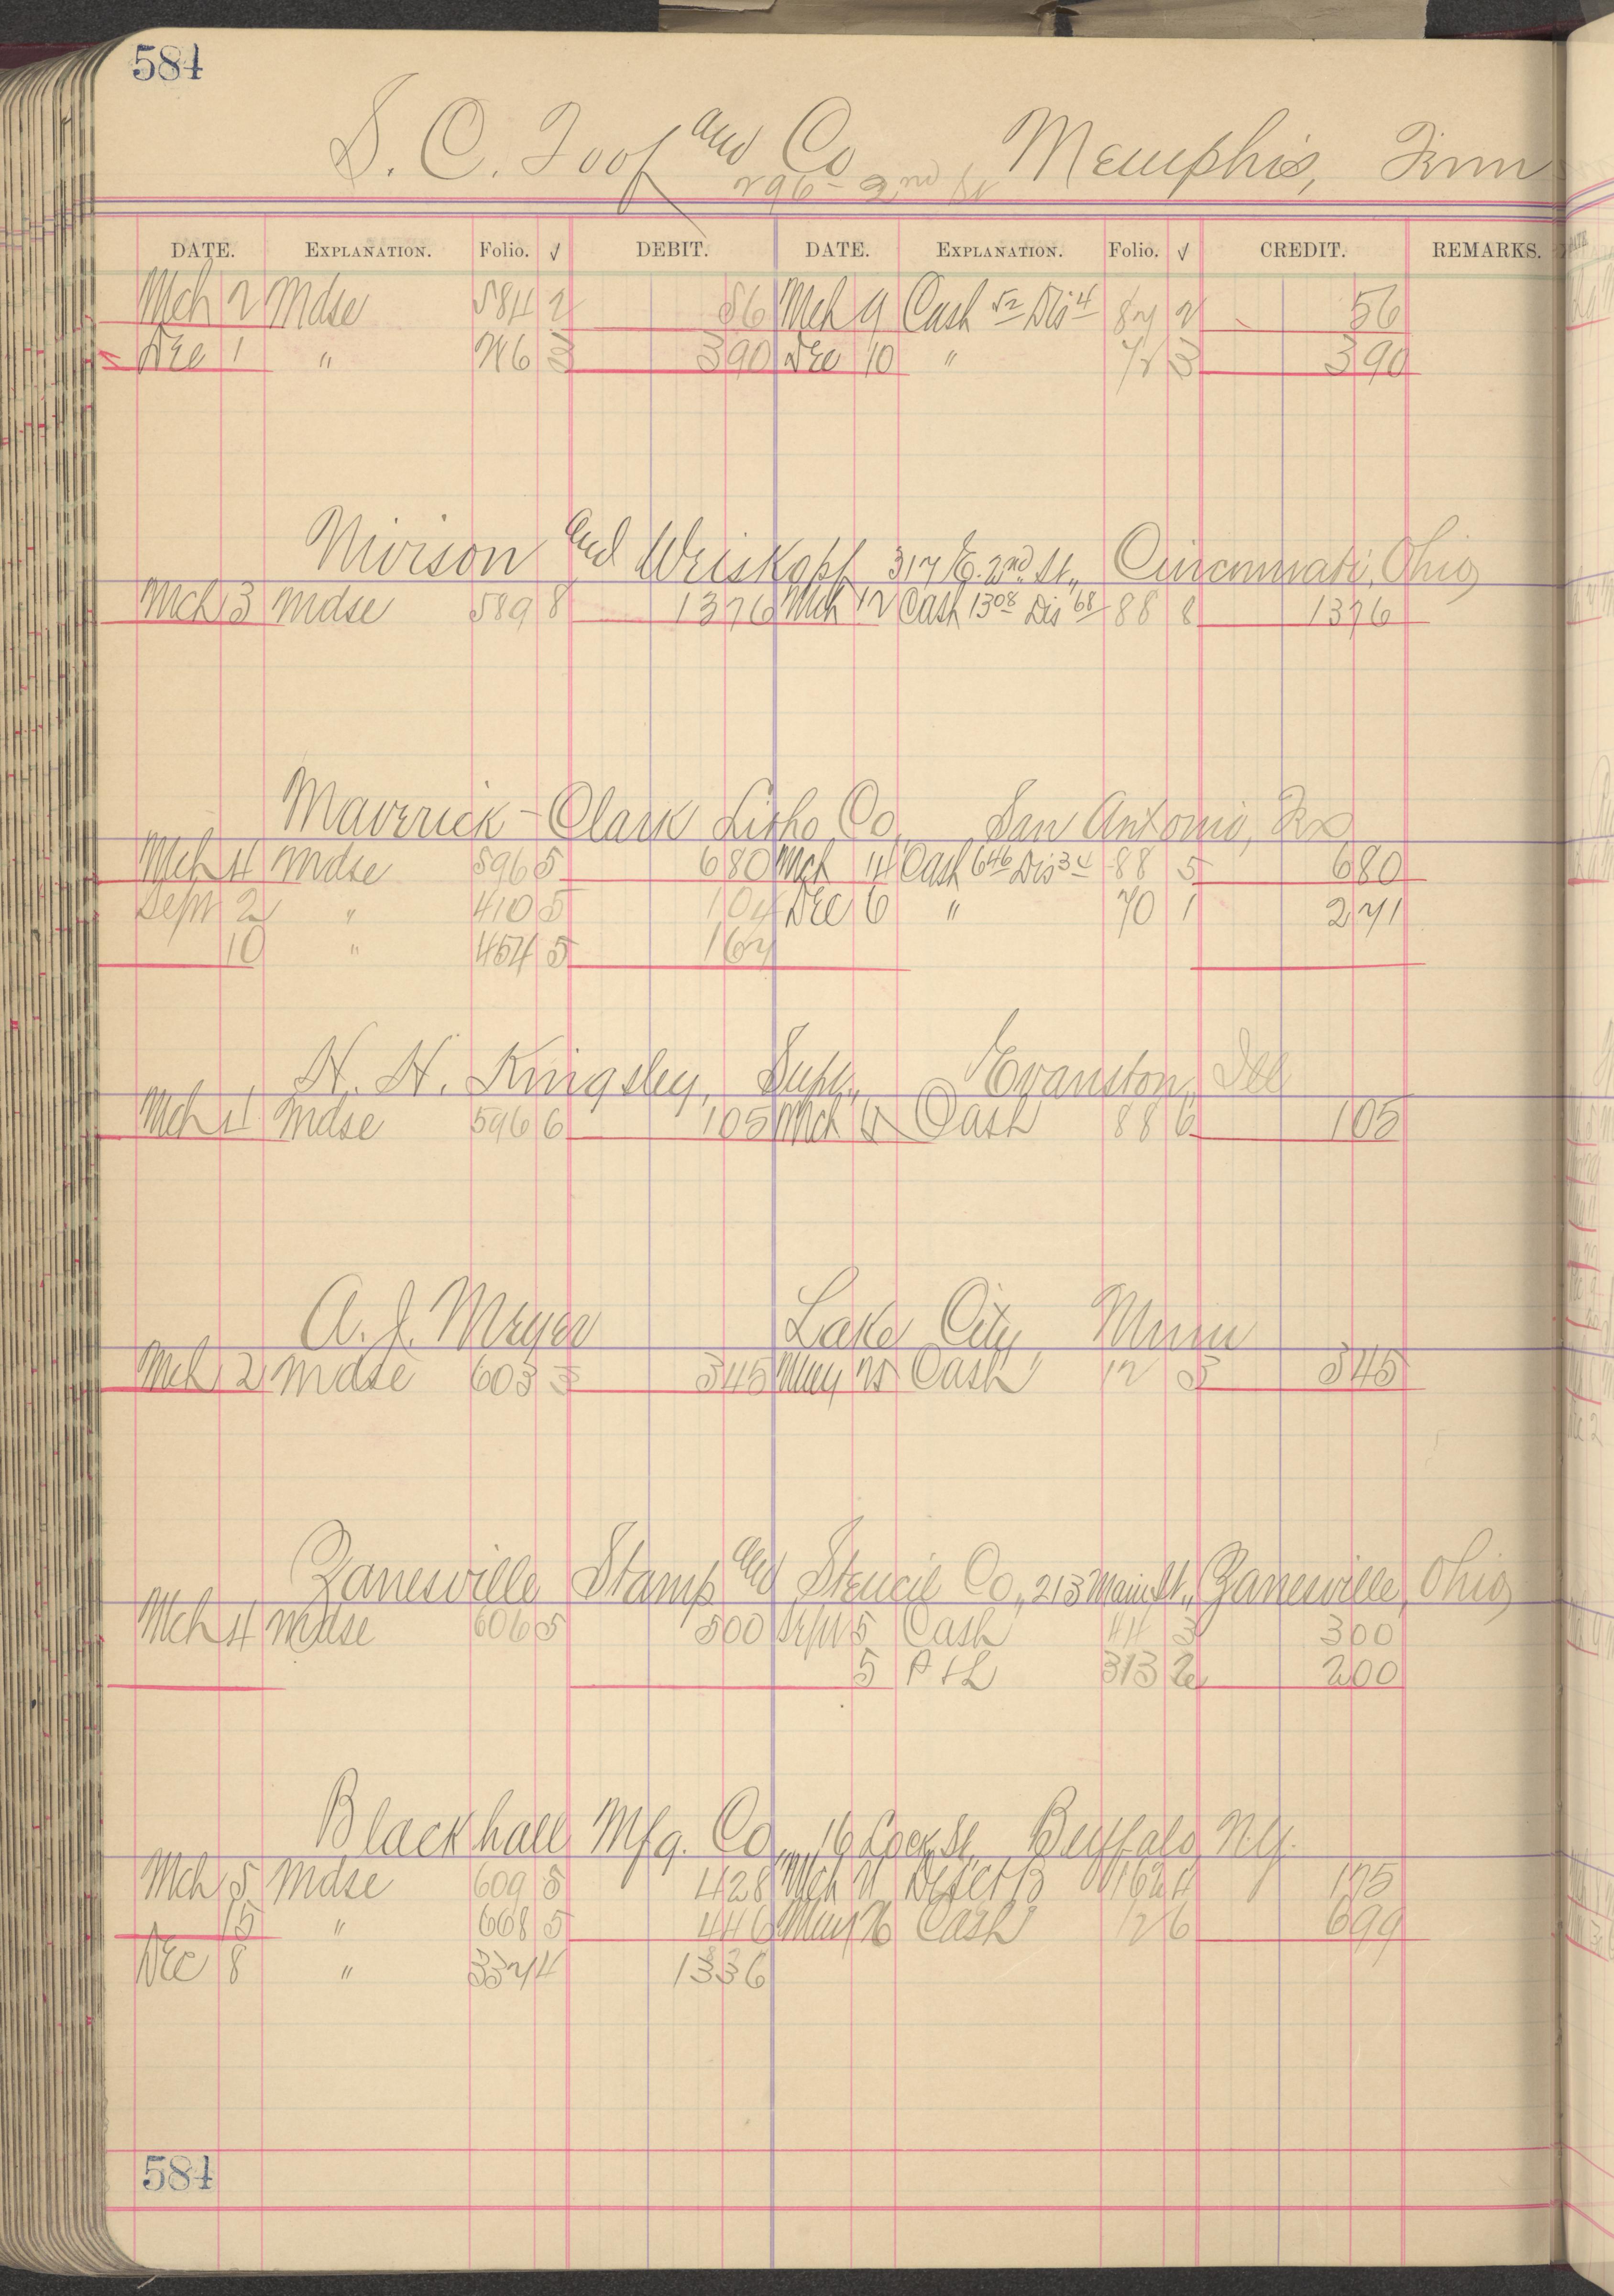 584
S. C. Toof and Co Memphis, Tenn
296 - 2nd St
DATE. EXPLANATION. Folio. √ DEBIT. DATE. EXPLANATION. Folio. √ CREDIT. REMARKS.
Mch 2 Mdse 584 2 56 Mch 9 Cash 52 Dis 4 87 2 56
Dec 1 " 3 390 Dec 10 " 72 3 390
and Weiskopf 317 E. 2nd St., Cincinnati, Ohio
Mch 3 Mdse 589 8 1376 Mch 12 Cash 1308 Dis 68 88 8 1376
Maverick-Clark Litho Co, San Antonio, Tex
Mch 4 Mdse 596 5 680 Mch 14 Cash 646 Dis 34 88 5 680
Sept 2 " 410 5 104 Dec 6 " 70 1 271
10 " 454 5 167
H. H. Kingsley, Supt., Evanston, Ill
Mch 4 Mdse 596 6 105 Mch Cash 88 6 105
A. J. Meyer Lake City Minn
Mch 2 Mdse 603 3 345 May 25 Cash 12 3 345
Zanesville Stamp and Stencil Co, 213 Main St., Zanesville, Ohio
Mch 4 Mdse 606 5 500 Sept 5 Cash 44 3 300
5 P & L 313 2 200
Blackhall Mfg. Co., 16 Lock St., Buffalo, N.Y.
Mch 5 Mdse 609 5 428 Mch 11 175
15 " 668 5 446 May 26 Cash 12 6 699
Dec 8 " 327 4 1336
584